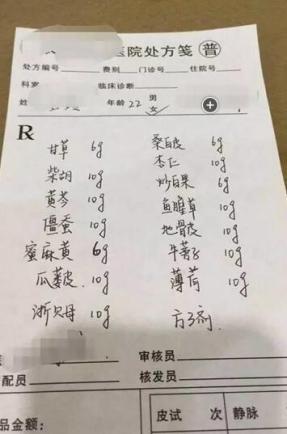 医院处方笺 普
处方编号 费别 门诊号 住院号
科 临床诊断
姓 年龄 22 男
女
R
甘草 6g 桑白皮 6g
柴胡 10g 杏仁 10g
黄芩 10g 炒白果 6g
僵蚕 10g 鱼腥草 10g
蜜麻黄 6g 地骨皮 10g
瓜蒌皮 10g 牛蒡子 10g
浙贝母 10g 薄荷 10g
方3剂
审核员
配员 核发员
品金额: 皮试 次 静脉